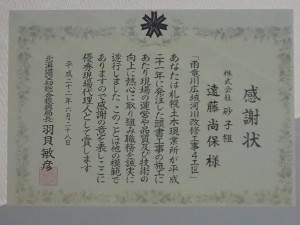 感謝状
株式会社 砂子組
遠藤 尚保 様
「雨竜川広域河川改修工事4工区」
あなたは札幌土木現業所が平成
二十一年に発注した頭書工事の施工に
あたり現場の運営や品質及び技術の
向上に熱心に取り組み職務を誠実に
遂行しました このことは他の模範で
ありますので感謝の意を表しここに
優秀現場代理人として賞します
平成二十二年六月二十八日
北海道空知総合振興局長 羽貝 敏彦